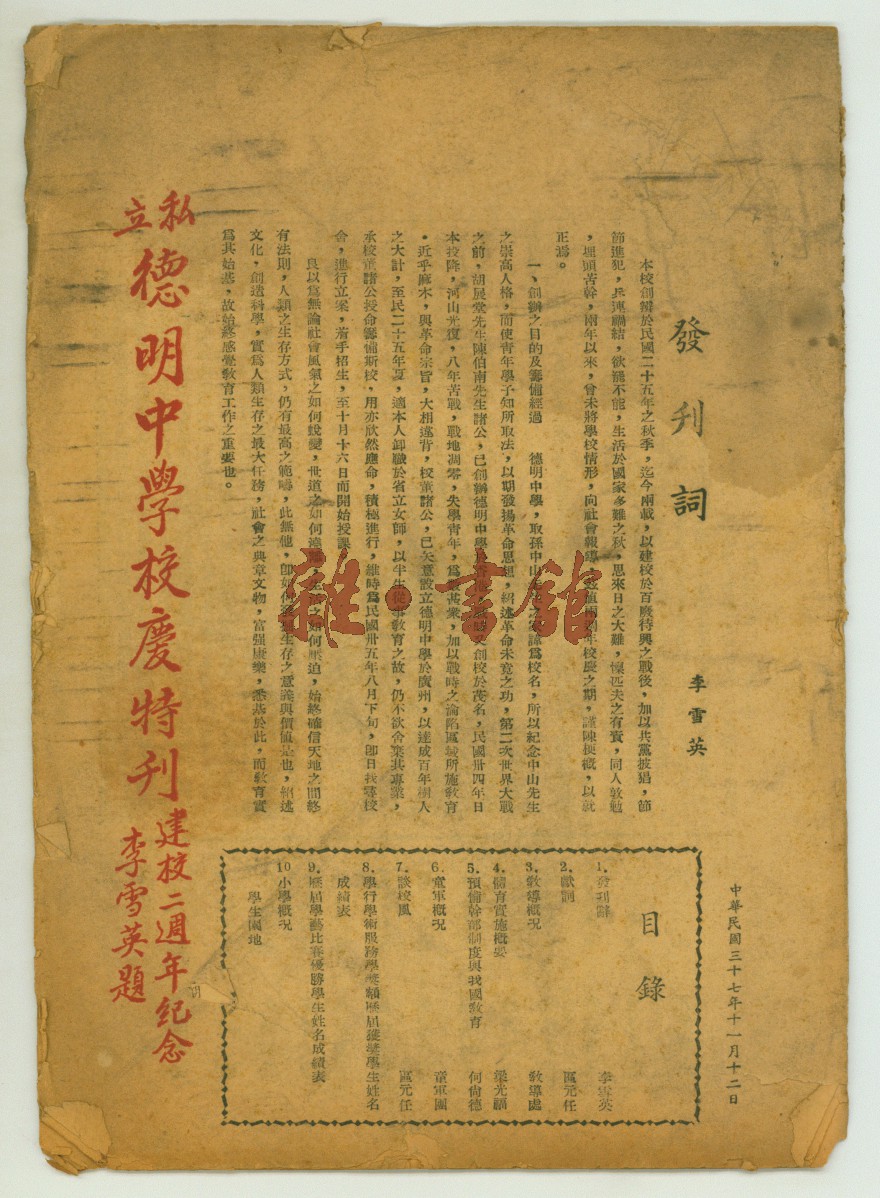 發刊詞
李雪英
本校創辦於民國二十五年之秋季，迄今兩載，以建校於百廢待興之戰後，加以共黨披猖，節
節進犯，兵連禍結，欲罷不能，生活於國家多難之秋，思來日之大難，懍匹夫之有責，同人敦勉
，埋頭苦幹，兩年以來，曾未將學校情形，向社會報導，值兩週年校慶之期，謹陳梗概，以就
正焉。
一、創辦之目的及籌備經過　德明中學，取孫中山先生之家諱為校名，所以紀念中山先生
之崇高人格，而使青年學子知所取法，以期發揚革命思想，紹述革命未竟之功，第二次世界大戰
之前，胡展堂先生陳伯南先生諸公，已創辦德明中學於香港，又創校於茂名，民國卅四年日
本投降，河山光復，八年苦戰，戰地凋零，失學青年，為數甚衆，加以戰時之淪陷區域所施教育
，近乎麻木，與革命宗旨，大相違背，校董諸公，已矢意設立德明中學於廣州，以達成百年樹人
之大計，至民二十五年夏，適本人卸職於省立女師，以半生從事教育之故，仍不欲舍棄其專業，
承校董諸公授命籌備斯校，用亦欣然應命，積極進行，維時為民國卅五年八月下旬，卽日找尋校
舍，進行立案，着手招生，至十月十六日而開始授課
良以為無論社會風氣之如何蛻變，世道之如何澆漓，生活之如何壓迫，始終確信天地之間終
有法則，人類之生存方式，仍有最高之範疇，此無他，卽如何生存之意義與價值是也，紹述
文化，創造科學，實為人類生存之最大任務，社會之典章文物，富强康樂，悉基於此，而教育實
為其始基，故始終感覺教育工作之重要也。
中華民國三十七年十一月十二日
目錄
1. 發刊辭 李雪英
2. 獻詞 區元任
3. 教導概況 教導處
4. 體育實施概要 梁光福
5. 預備幹部制度與我國教育 何尙德
6. 童軍概況 童軍團
7. 談校風 區元任
8. 學行學術服務學獎額歷屆獲獎學生姓名
成績表
9. 歷屆學藝比賽優勝學生姓名成績表
10 小學概況
學生園地
私立德明中學校慶特刊
建校二週年紀念
李雪英題
雜·書館